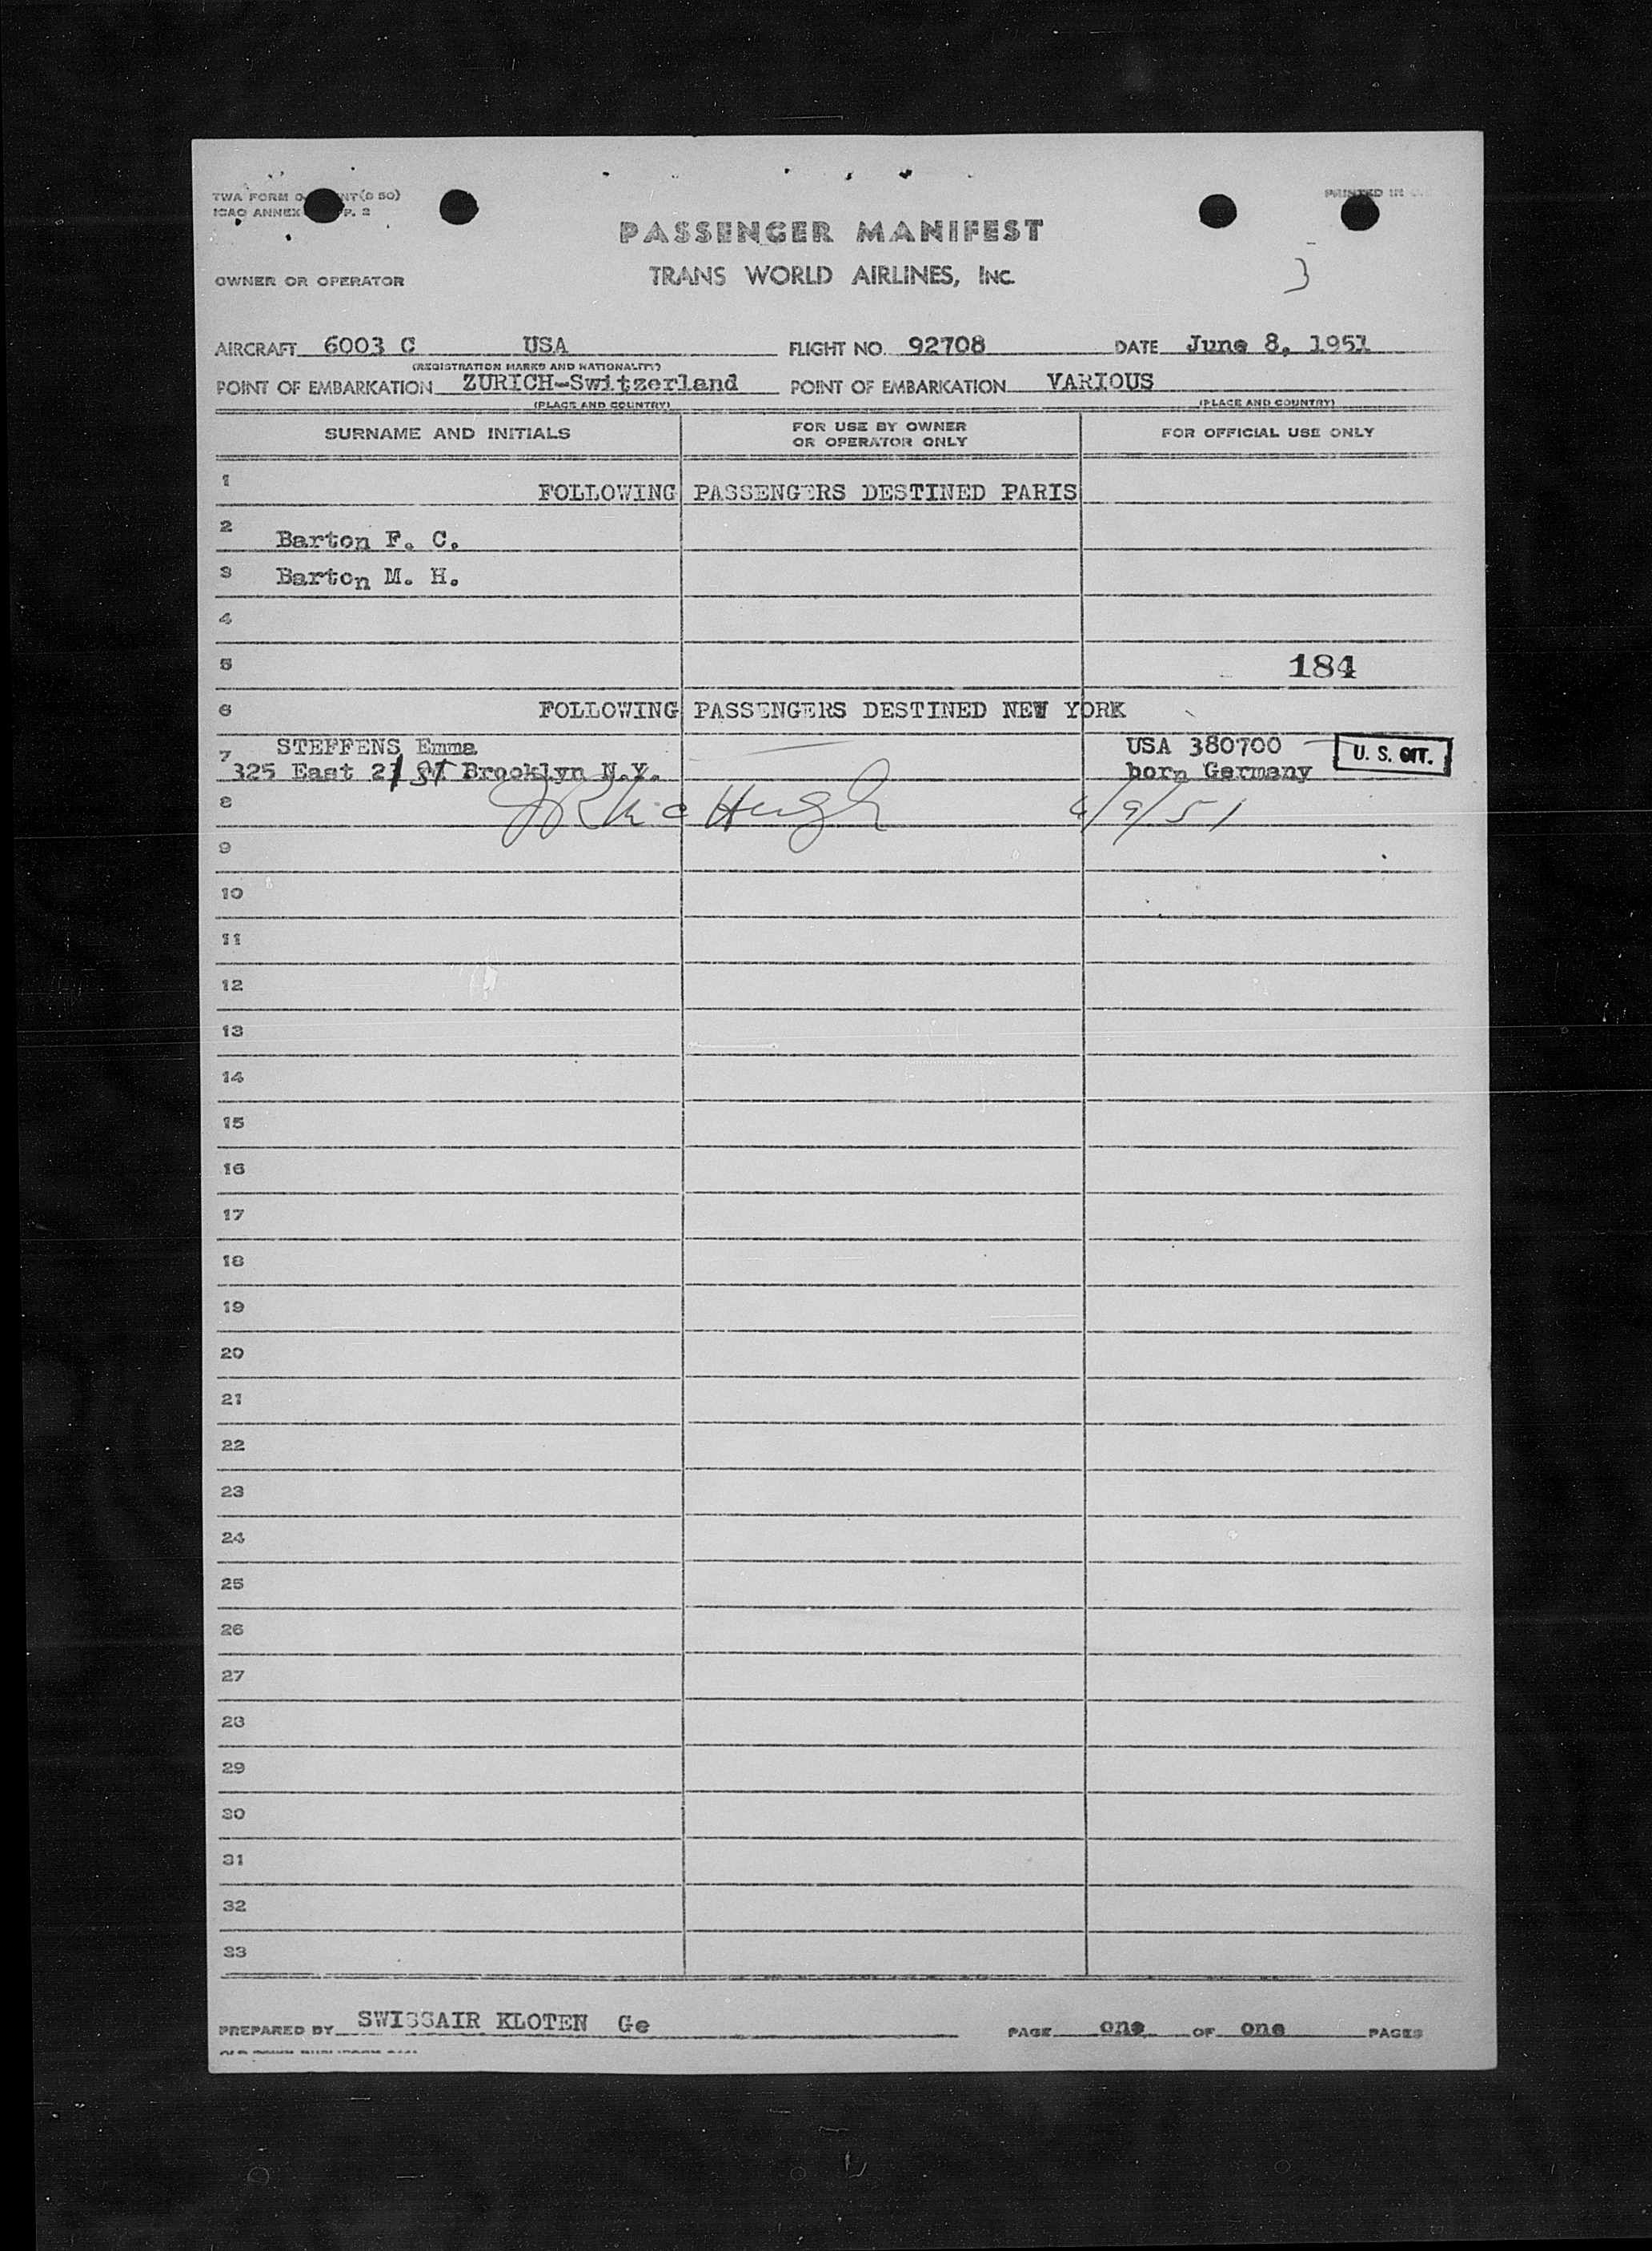 TWA FORM
ICAO ANNEX P. 2
PRINTED IN
PASSENGER MANIFEST
OWNER OR OPERATOR
TRANS WORLD AIRLINES, INC.
3
AIRCRAFT 6003 C USA FLIGHT NO. 92708 DATE June 8, 1951
(REGISTRATION MARKS AND NATIONALITY)
POINT OF EMBARKATION ZURICH-Switzerland POINT OF EMBARKATION VARIOUS
(PLACE AND COUNTRY) (PLACE AND COUNTRY)
SURNAME AND INITIALS FOR USE BY OWNER OR OPERATOR ONLY FOR OFFICIAL USE ONLY
1 FOLLOWING PASSENGERS DESTINED PARIS
2 Barton F. C.
3 Barton M. H.
4
5 184
6 FOLLOWING PASSENGERS DESTINED NEW YORK
7 STEFFENS Emma USA 380700 U. S. CIT.
325 East 21 ST Brooklyn N.Y. born Germany
8 McHugh 6/9/51
9
10
11
12
13
14
15
16
17
18
19
20
21
22
23
24
25
26
27
28
29
30
31
32
33
PREPARED BY SWISSAIR KLOTEN Ge PAGE one OF one PAGES